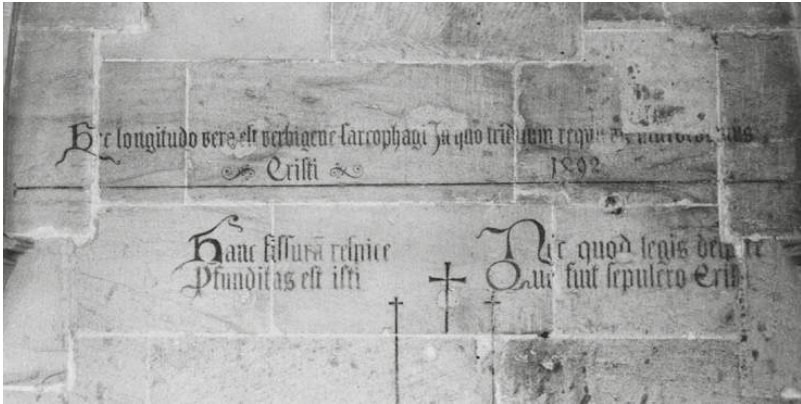 Hec longitudo vera est verbigene sarcophagi In quo triduum
Cristi 1502
Hanc fissurā respice
Pfunditas est isti
Hic quod legis
Que fuit sepulcro Cristi